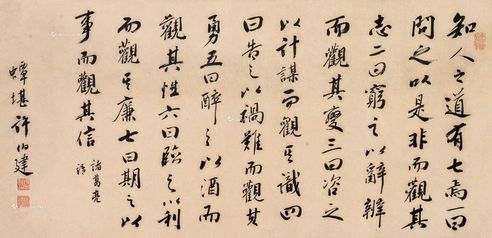 知人之道有七焉一曰
問之以是非而觀其
志二曰窮之以辭辯
而觀其變三曰咨之
以計謀而觀其識四
曰告之以禍難而觀其
勇五曰醉之以酒而
觀其性六曰臨之以利
而觀其廉七曰期之以
事而觀其信 諸葛亮
蟫堪許伯建